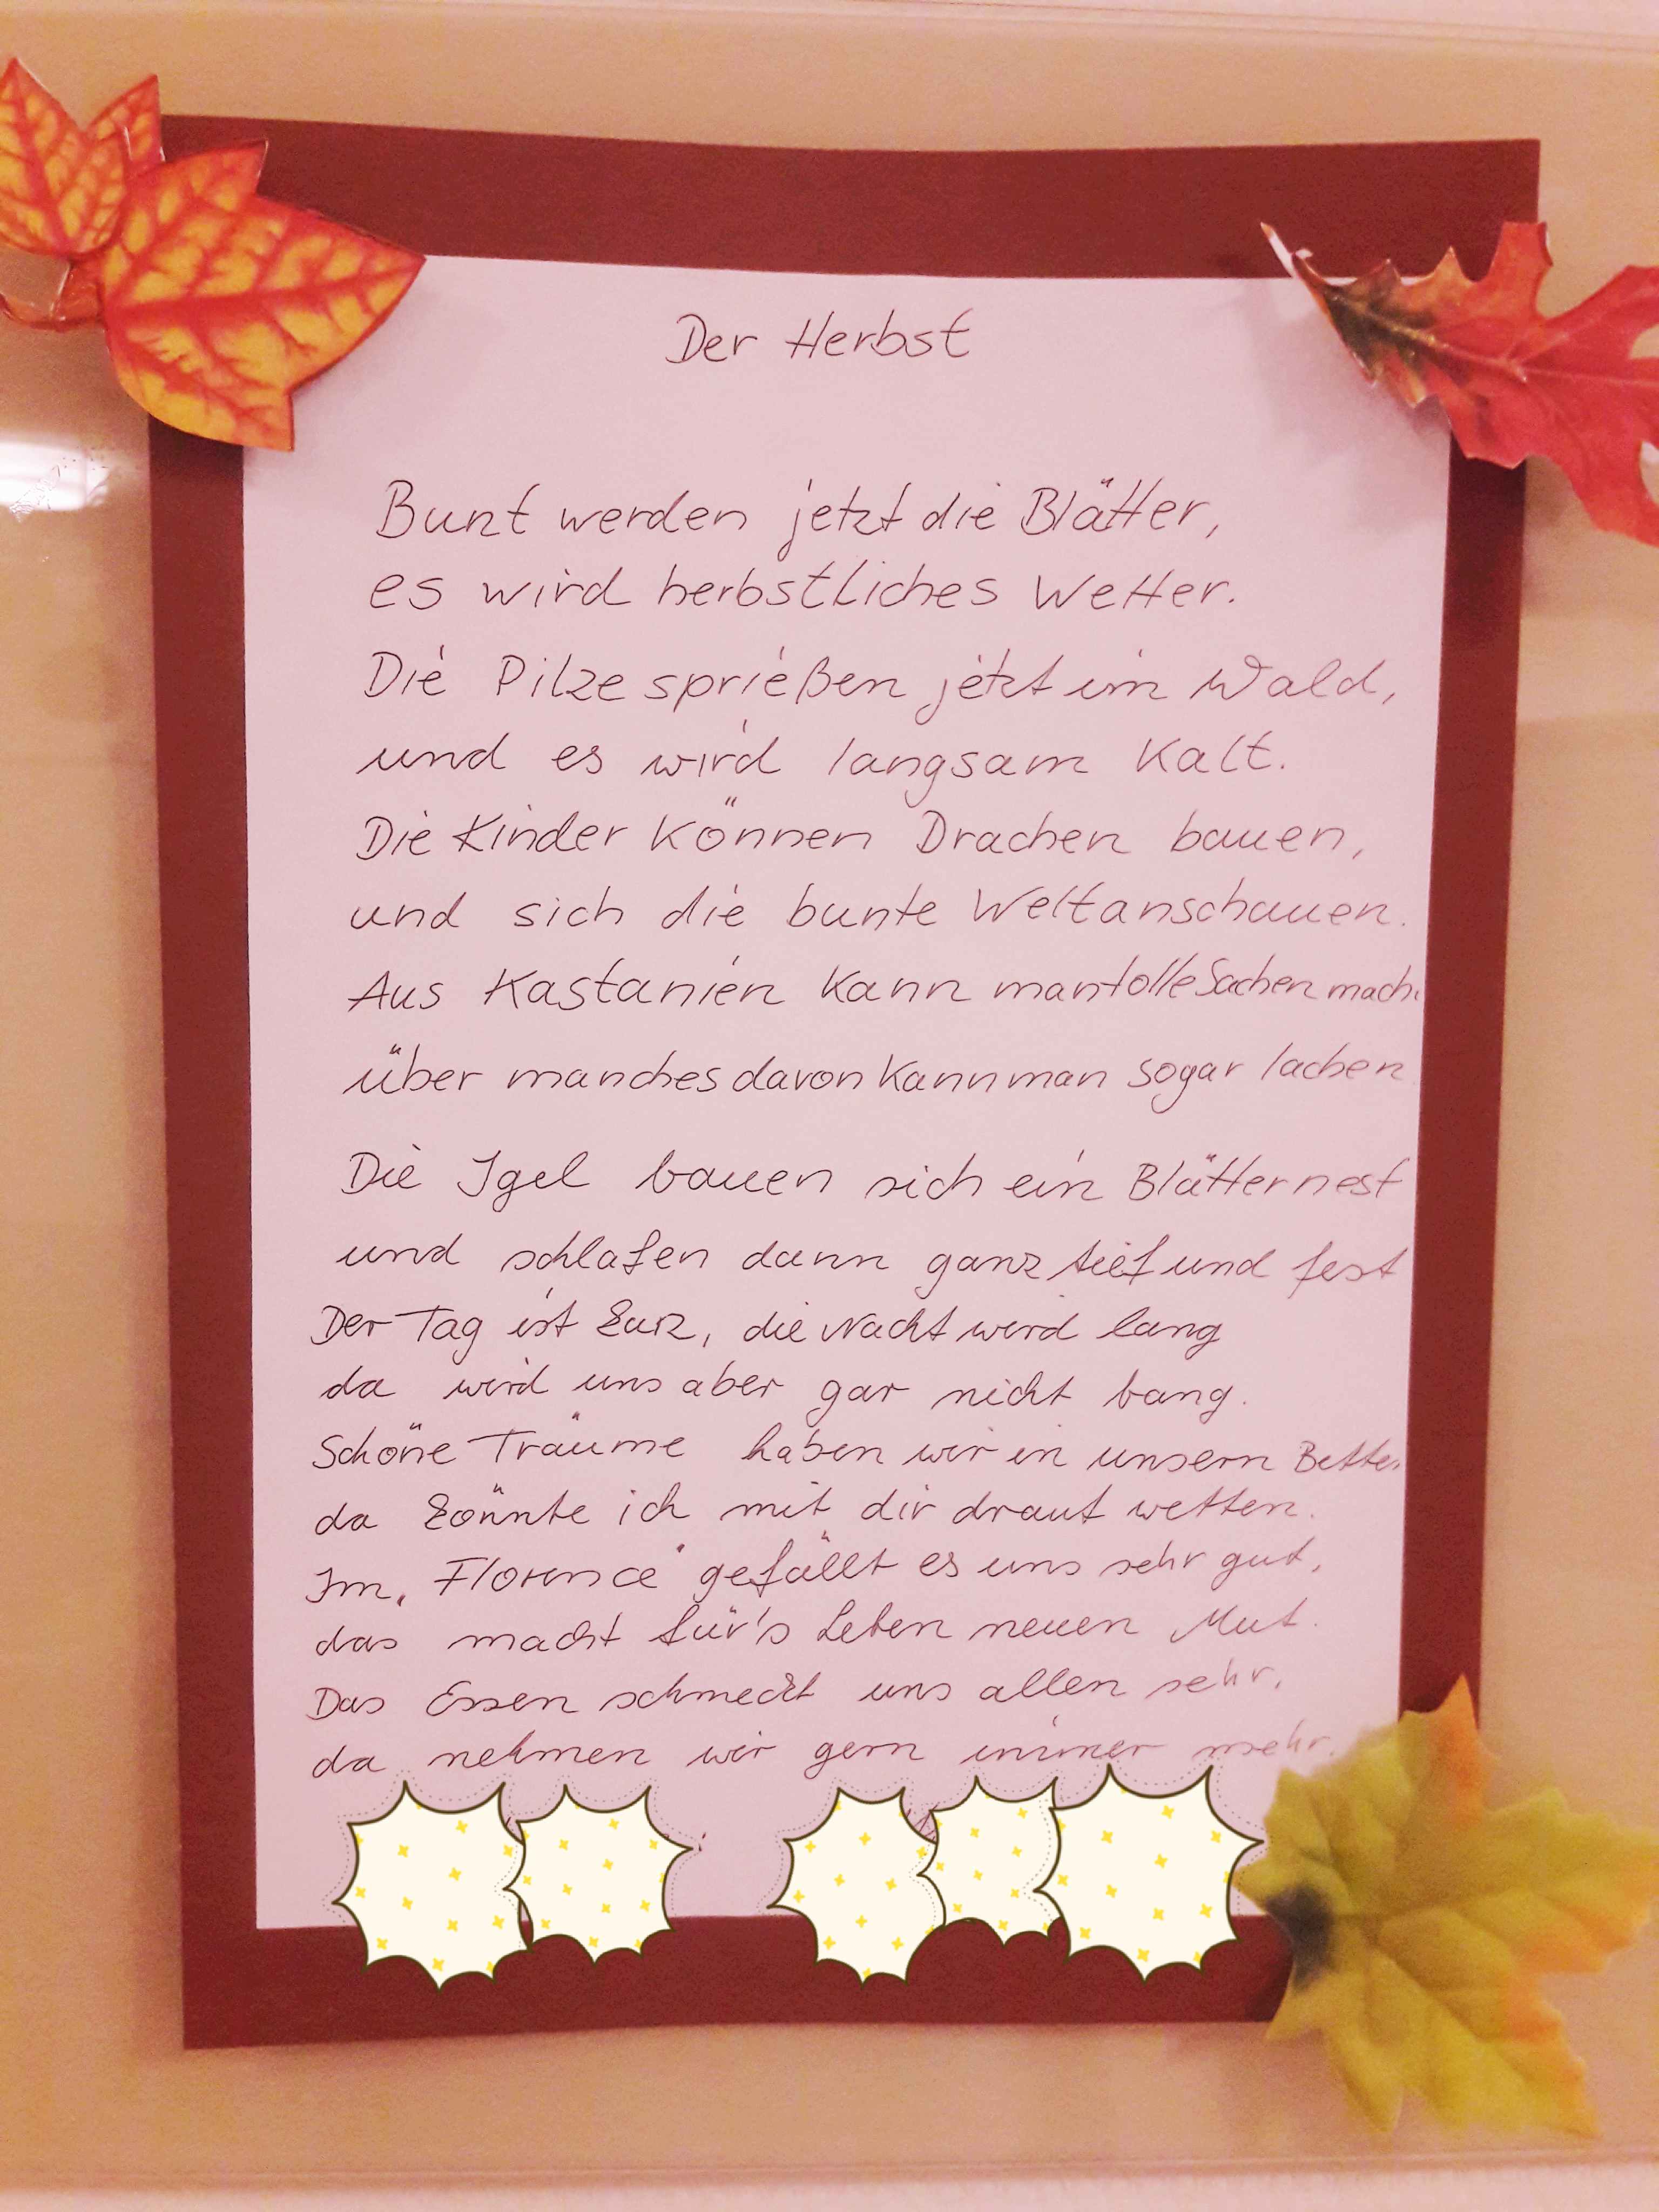 Der Herbst
Bunt werden jetzt die Blätter,
es wird herbstliches Wetter.
Die Pilze sprießen jetzt im Wald,
und es wird langsam Kalt.
Die Kinder Können Drachen bauen,
und sich die bunte Welt anschauen.
Aus Kastanien Kann man tolle Sachen mach
über manches davon Kann man sogar lachen
Die Igel bauen sich ein Blätternest
und schlafen dann ganz tief und fest
Der Tag ist kurz, die Nacht wird lang
da wird uns aber gar nicht bang.
Schöne Träume haben wir in unsern Bette
da könnte ich mit dir drauf wetten.
Im „Florence" gefällt es uns sehr gut,
das macht für's Leben neuen Mut.
Das Essen schmeckt uns allen sehr,
da nehmen wir gern immer mehr.